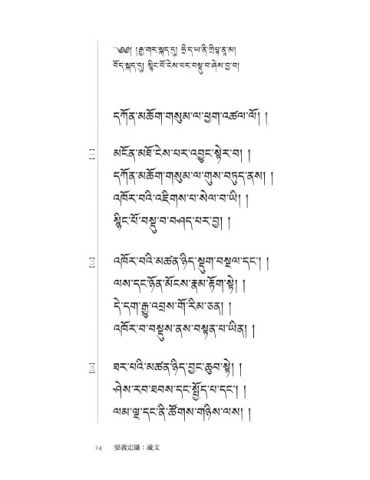 ༄༅། །རྒྱ་གར་སྐད་དུ། ཧྲྀ་ད་ཡ་ནི་ཀྵིཔྟ་ནཱ་མ།
བོད་སྐད་དུ། སྙིང་པོ་ངེས་པར་བསྡུ་བ་ཞེས་བྱ་བ།
དཀོན་མཆོག་གསུམ་ལ་ཕྱག་འཚལ་ལོ། །
མངོན་མཐོ་ངེས་པར་འབྱུང་སྟེར་བ། །
དཀོན་མཆོག་གསུམ་ལ་གུས་བཏུད་ནས། །
འཁོར་བའི་འཇིགས་པ་སེལ་བ་ཡི། །
སྙིང་པོ་བསྡུ་བ་བཤད་པར་བྱ། །
འཁོར་བའི་མཚན་ཉིད་སྡུག་བསྔལ་དང་། །
ལས་དང་ཉོན་མོངས་རྣམ་རྟོག་སྟེ། །
དེ་དག་རྒྱུ་འབྲས་གོ་རིམ་ཅན། །
འཁོར་བ་བསྡུས་ནས་བསྟན་པ་ཡིན། །
ཐར་པའི་མཚན་ཉིད་བྱང་ཆུབ་སྟེ། །
ཤེས་རབ་ཐབས་དང་སྤྱོད་པ་དང་། །
ལམ་ལྔ་དང་ནི་ཚོགས་གཉིས་ལས། །
24 要義定攝：藏文